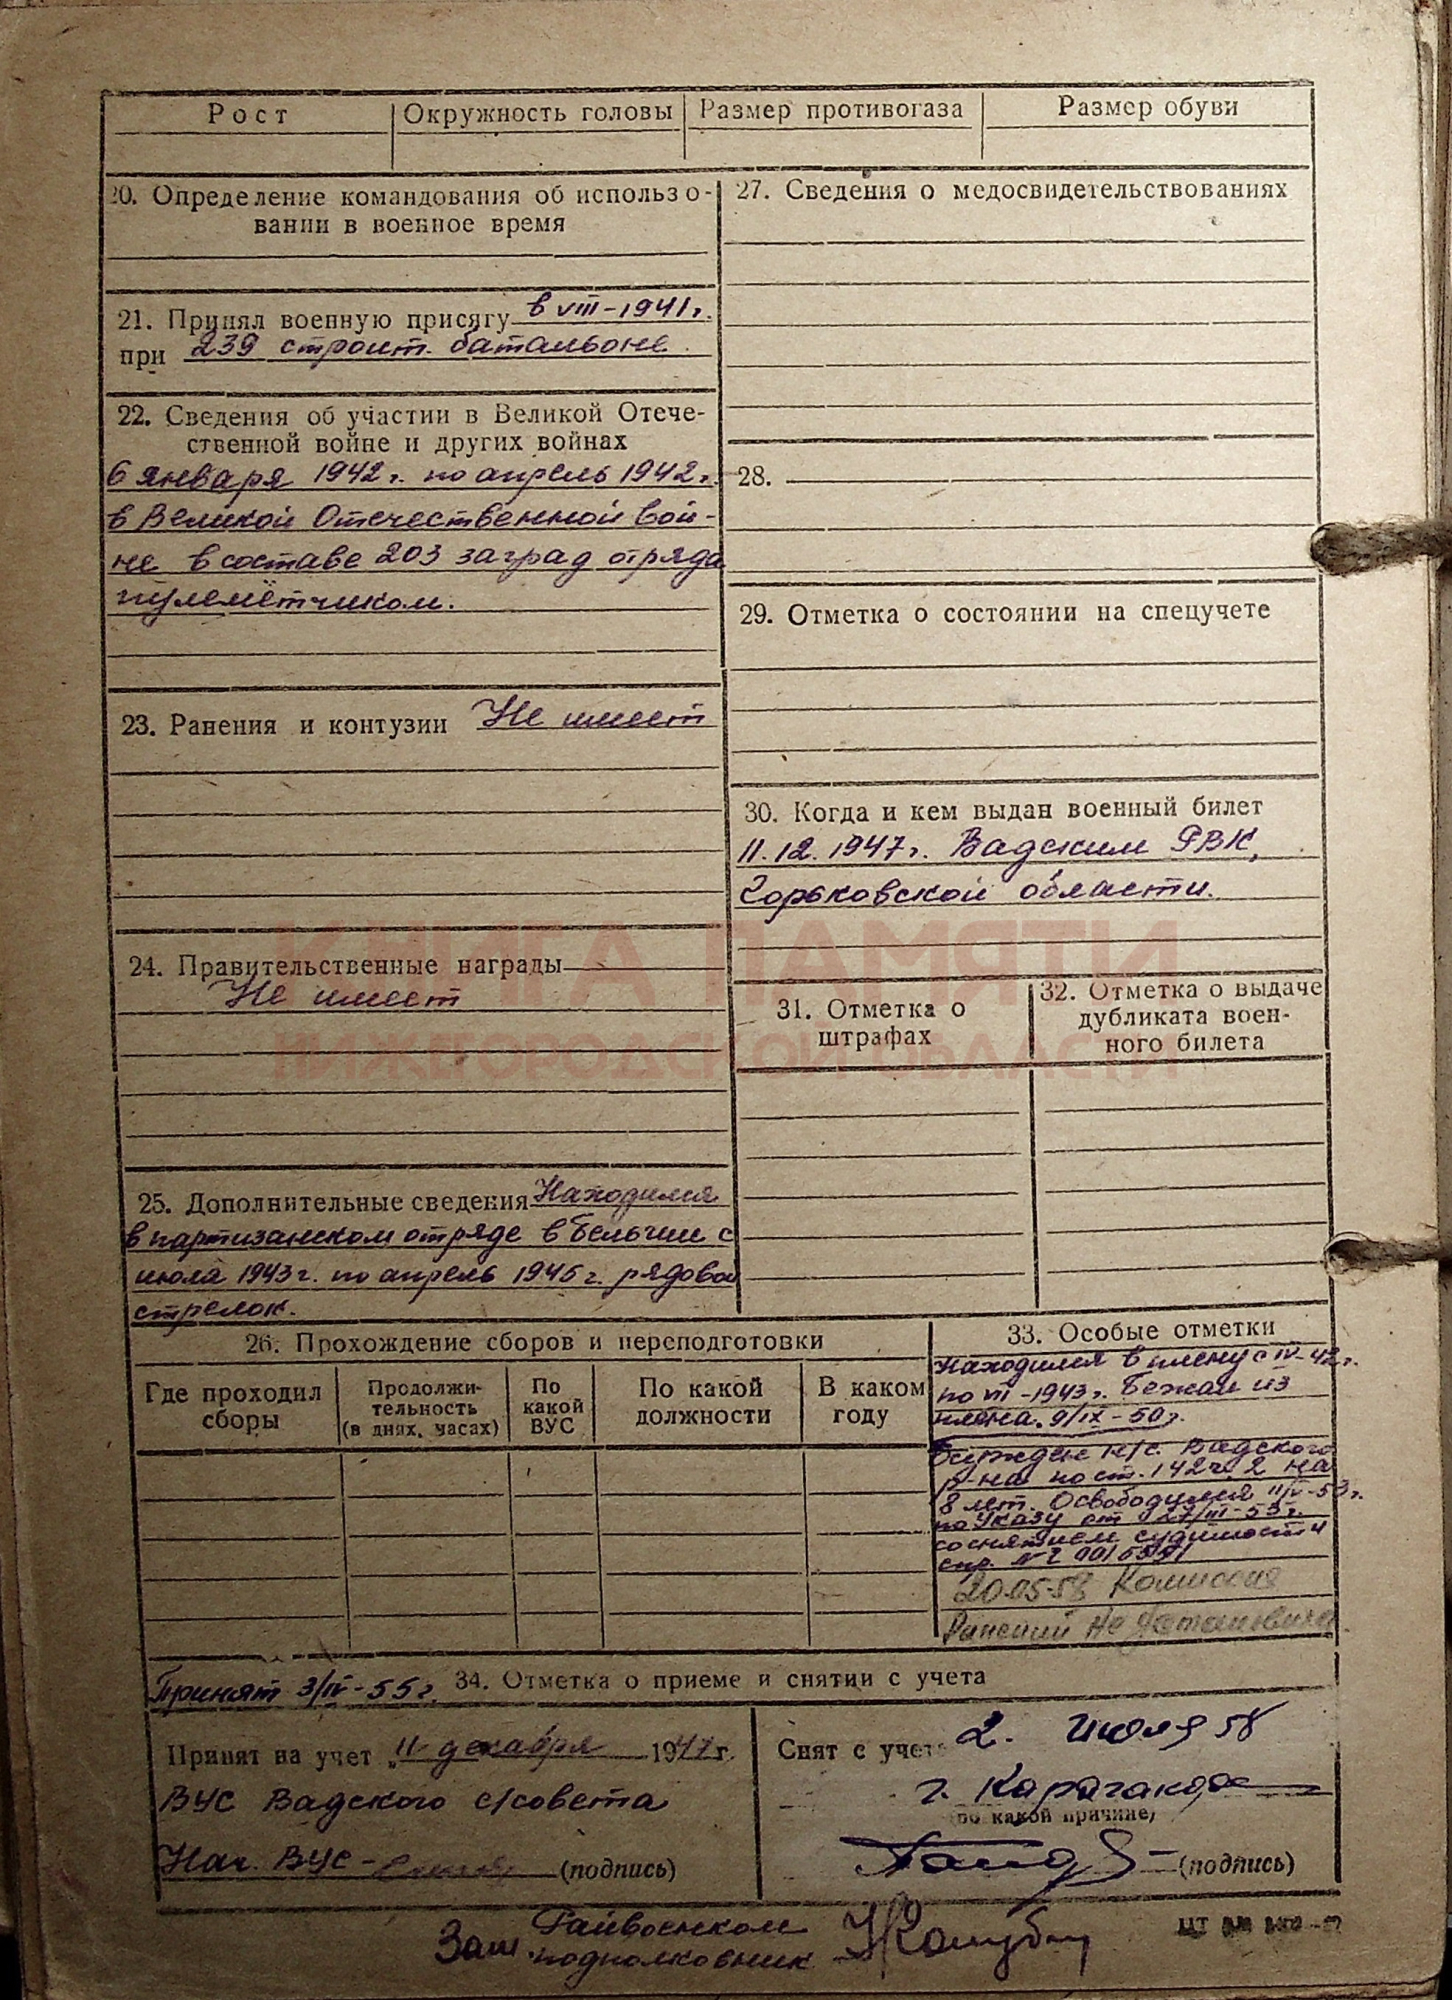 Рост Окружность головы Размер противогаза Размер обуви
20. Определение командования об использо-
вании в военное время
21. Принял военную присягу в VIII-1941г.
при 239 строит. батальоне.
22. Сведения об участии в Великой Отече-
ственной войне и других войнах
6 января 1942г. по апрель 1942г.
в Великой Отечественной вой-
не в составе 203 заград отряда
пулемётчиком.
23. Ранения и контузии Не имеет
24. Правительственные награды
Не имеет
25. Дополнительные сведения Находился
в партизанском отряде в Бельгии с
июля 1943г. по апрель 1945г. рядовой
стрелок.
27. Сведения о медосвидетельствованиях
28.
29. Отметка о состоянии на спецучете
30. Когда и кем выдан военный билет
11.12.1947г. Вадским РВК,
Горьковской области.
31. Отметка о
штрафах
32. Отметка о выдаче
дубликата воен-
ного билета
КНИГА ПАМЯТИ
НИЖЕГОРОДСКОЙ ОБЛАСТИ
26. Прохождение сборов и переподготовки
Где проходил
сборы
Продолжи-
тельность
(в днях, часах)
По
какой
ВУС
По какой
должности
В каком
году
33. Особые отметки
Находился в плену с IV-42г.
по VII-1943г. Бежал из
плена. 9/IX-50г.
Осужден н/с. Вадского
р-на по ст. 142 ч. 2 на
8 лет. Освободился 11/IV-53г.
по Указу от 27/III-53г.
со снятием судимости
спр. №
20.05.58 Комиссия
Ранений не установила
34. Отметка о приеме и снятии с учета
Принят 3/IV-55г.
Принят на учет „11 декабря 1947г.
ВУС Вадского с/совета
Нач. ВУС- (подпись)
Снят с учета 2. Июля 58
г. Караганда
(по какой причине)
(подпись)
Зам. Райвоенком
подполковник